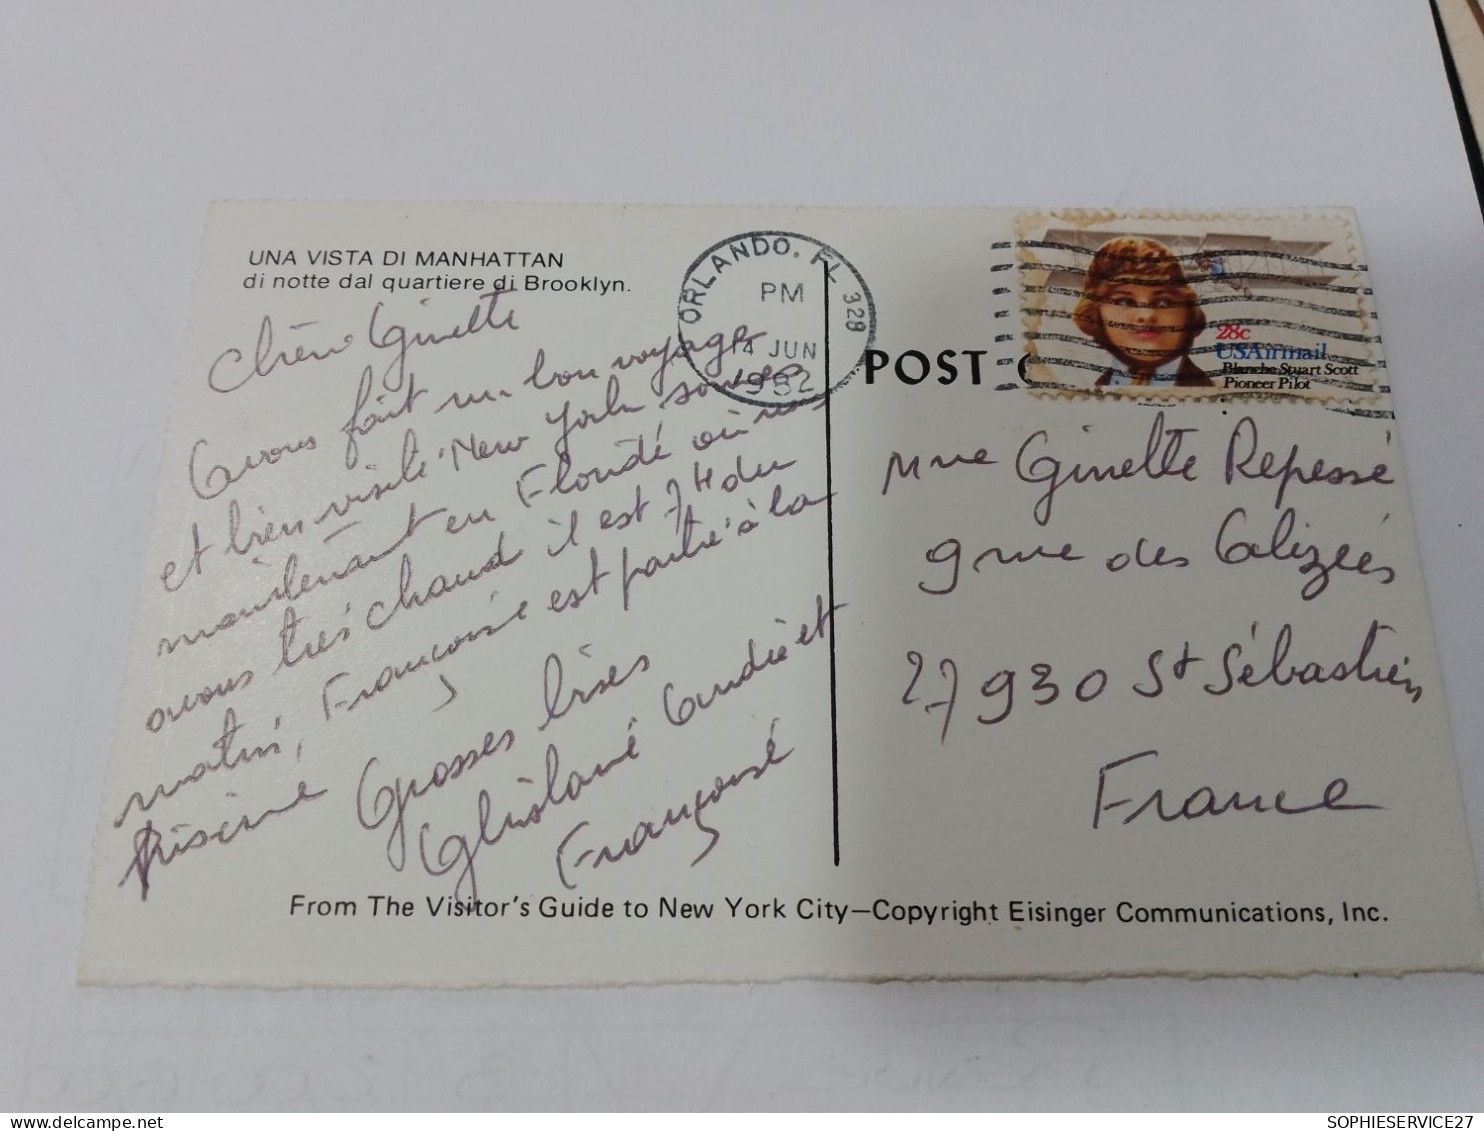 UNA VISTA DI MANHATTAN
di notte dal quartiere di Brooklyn.
Chère Ginette
Avons fait un bon voyage
et bien visité New York sommes
maintenant en Floride où nous
avons très chaud il est 7H du
matin, Françoise est partie à la
piscine Grosses bises
Ghislaine André et
Françoise
ORLANDO, FL 328
PM
14 JUN
1982
28c
USAirmail
Blanche Stuart Scott
Pioneer Pilot
POST C
Mme Ginette Repessé
9 rue des Alizées
27930 St Sébastien
France
From The Visitor's Guide to New York City—Copyright Eisinger Communications, Inc.
SOPHIESERVICE27